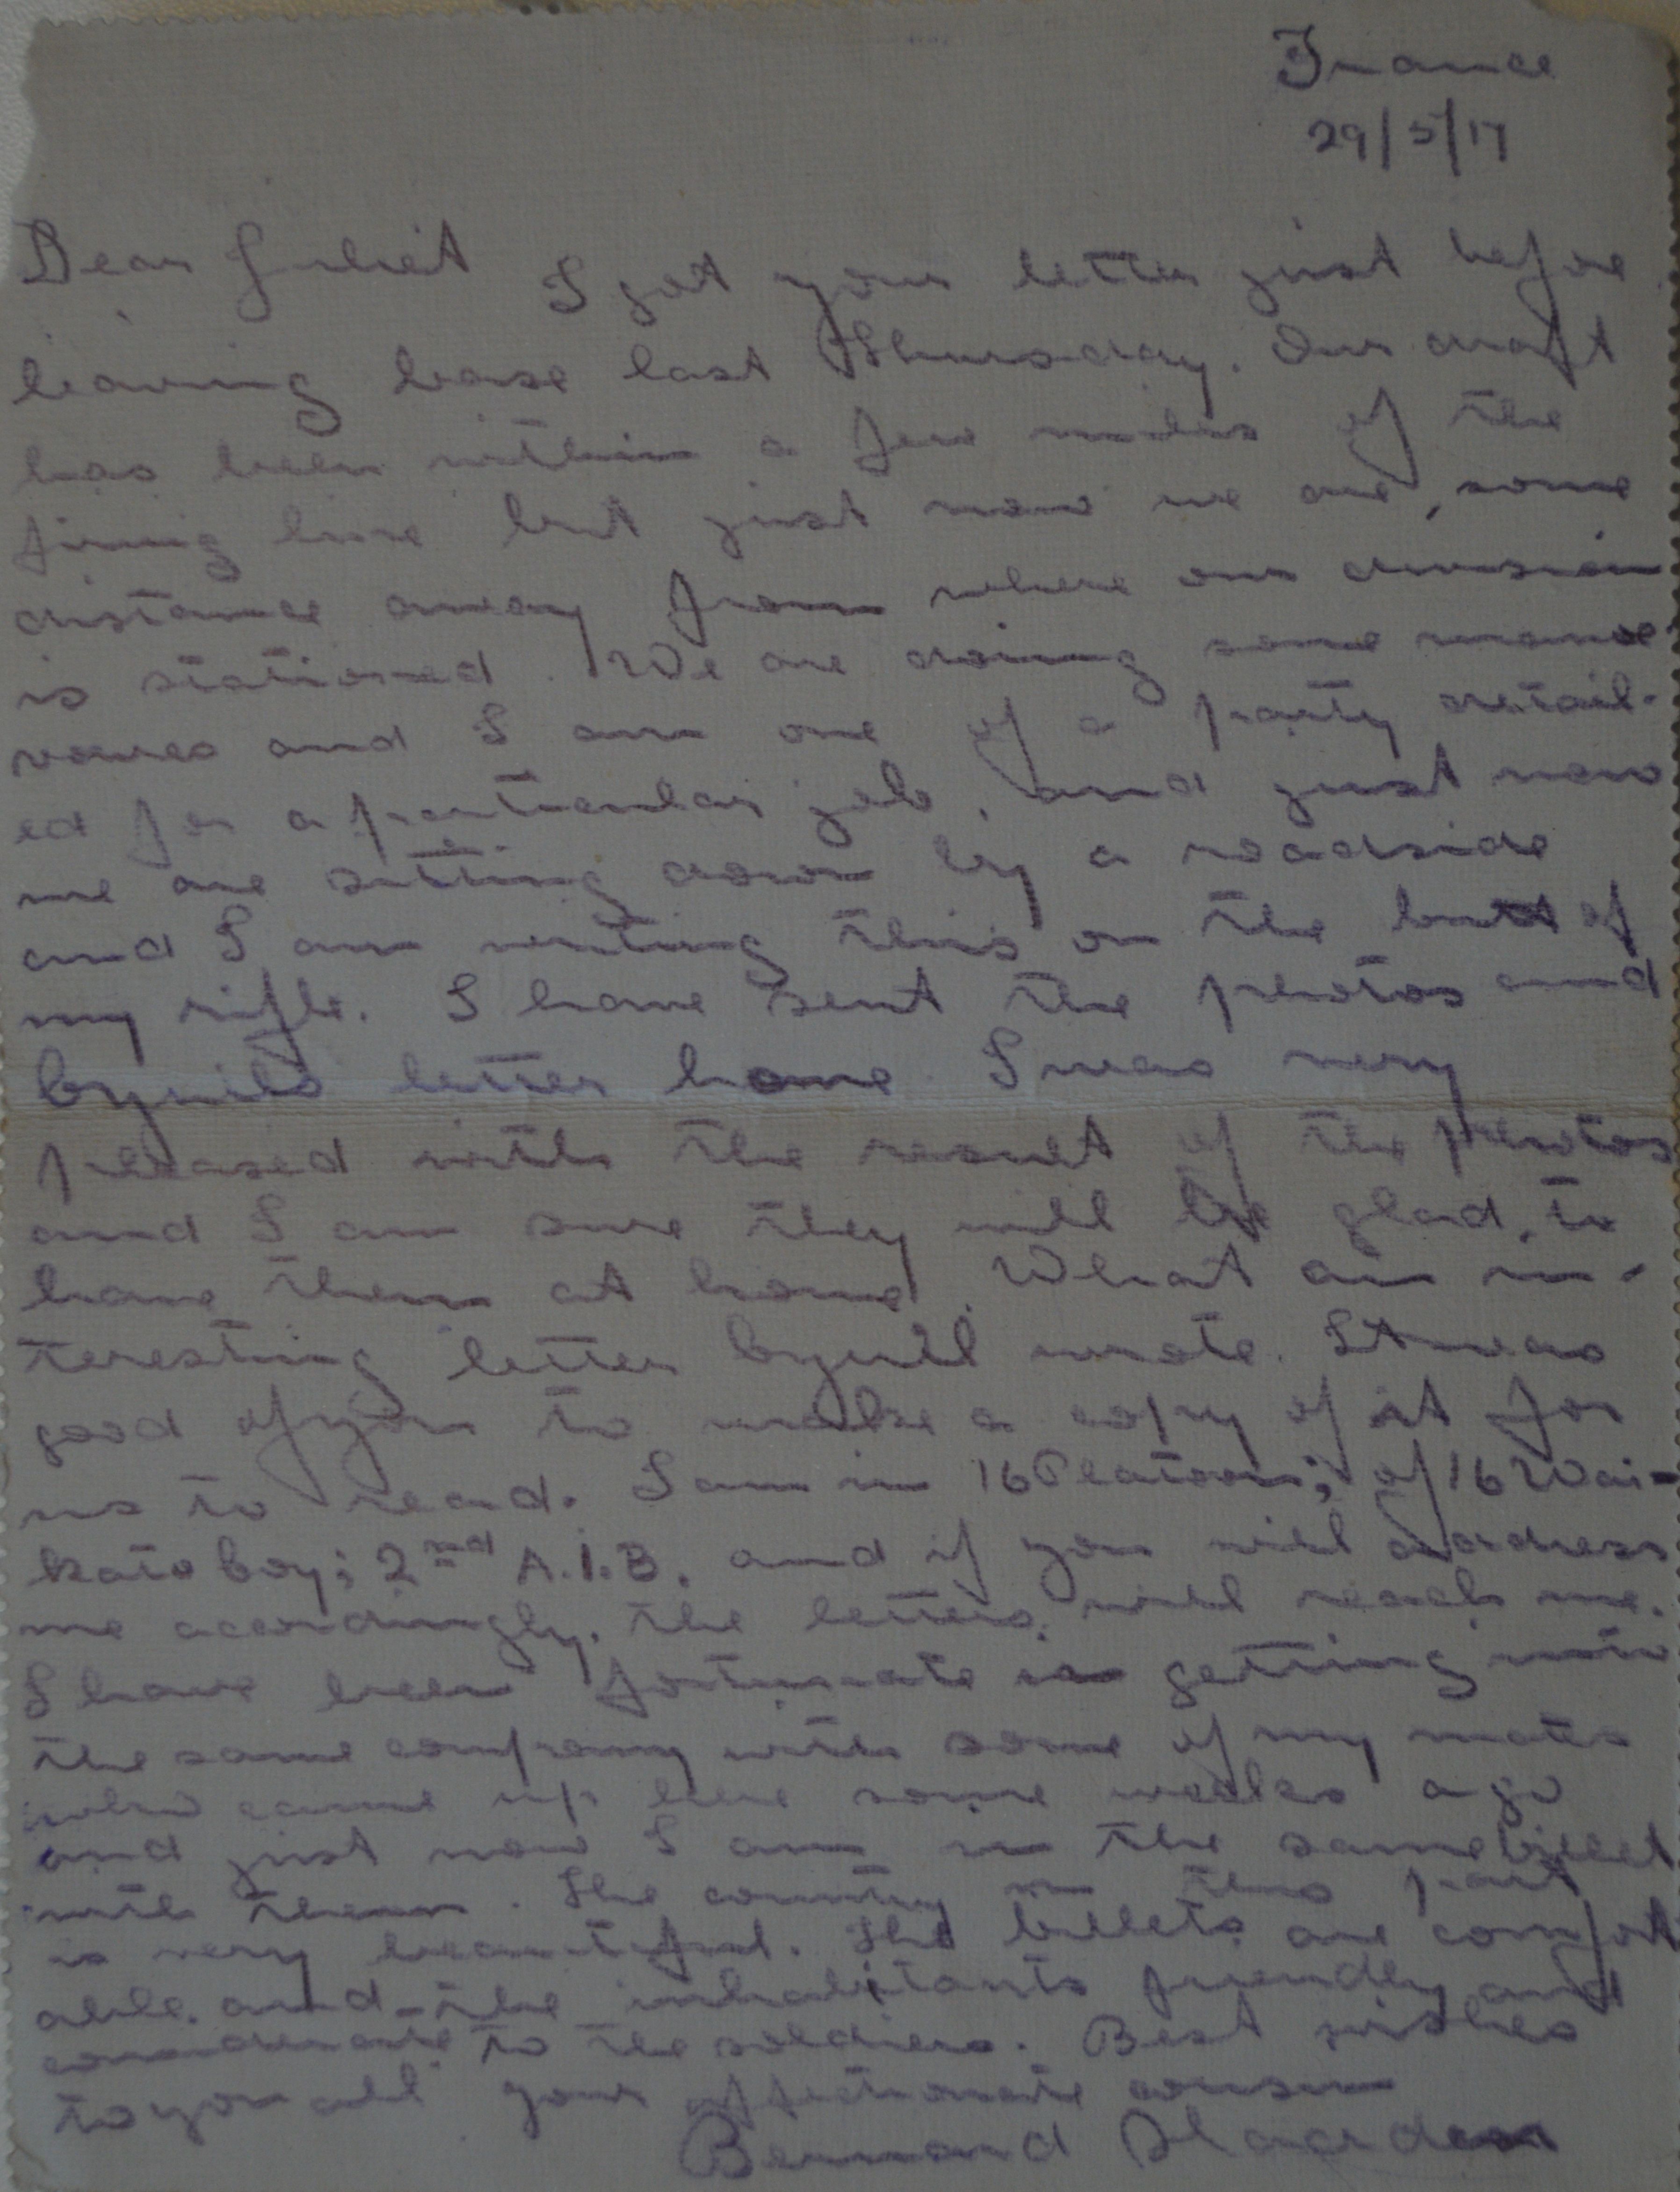 France
29/5/17
Dear Juliet I got your letter just before
leaving base last Thursday. Our draft
has been within a few miles of the
firing line but just now we are, some
distance away from where our division
is stationed. We are doing some manoe-
vores and I am one of a party detail-
ed for a particular job, and just now
we are sitting down by a roadside
and I am writing this on the butt of
my rifle. I have sent the photos and
letter home. I was very
pleased with the result of the photos
and I am sure they will be glad, to
have them at home. What an in-
teresting letter wrote. It was
good of you to make a copy of it for
us to read. I am in 16 Platoon; of 16 Wai-
kato Coy; 2nd A.I.B. and if you will address
me accordingly, the letters will reach me.
I have been fortunate in getting into
the same company with some of my mates
who came up here some weeks ago
and just now I am in the same billet
with them. The country in this part
is very beautiful. The billets are comfort
able, and the inhabitants friendly and
considerate to the soldiers. Best wishes
to you all your affectionate cousin
Bernard